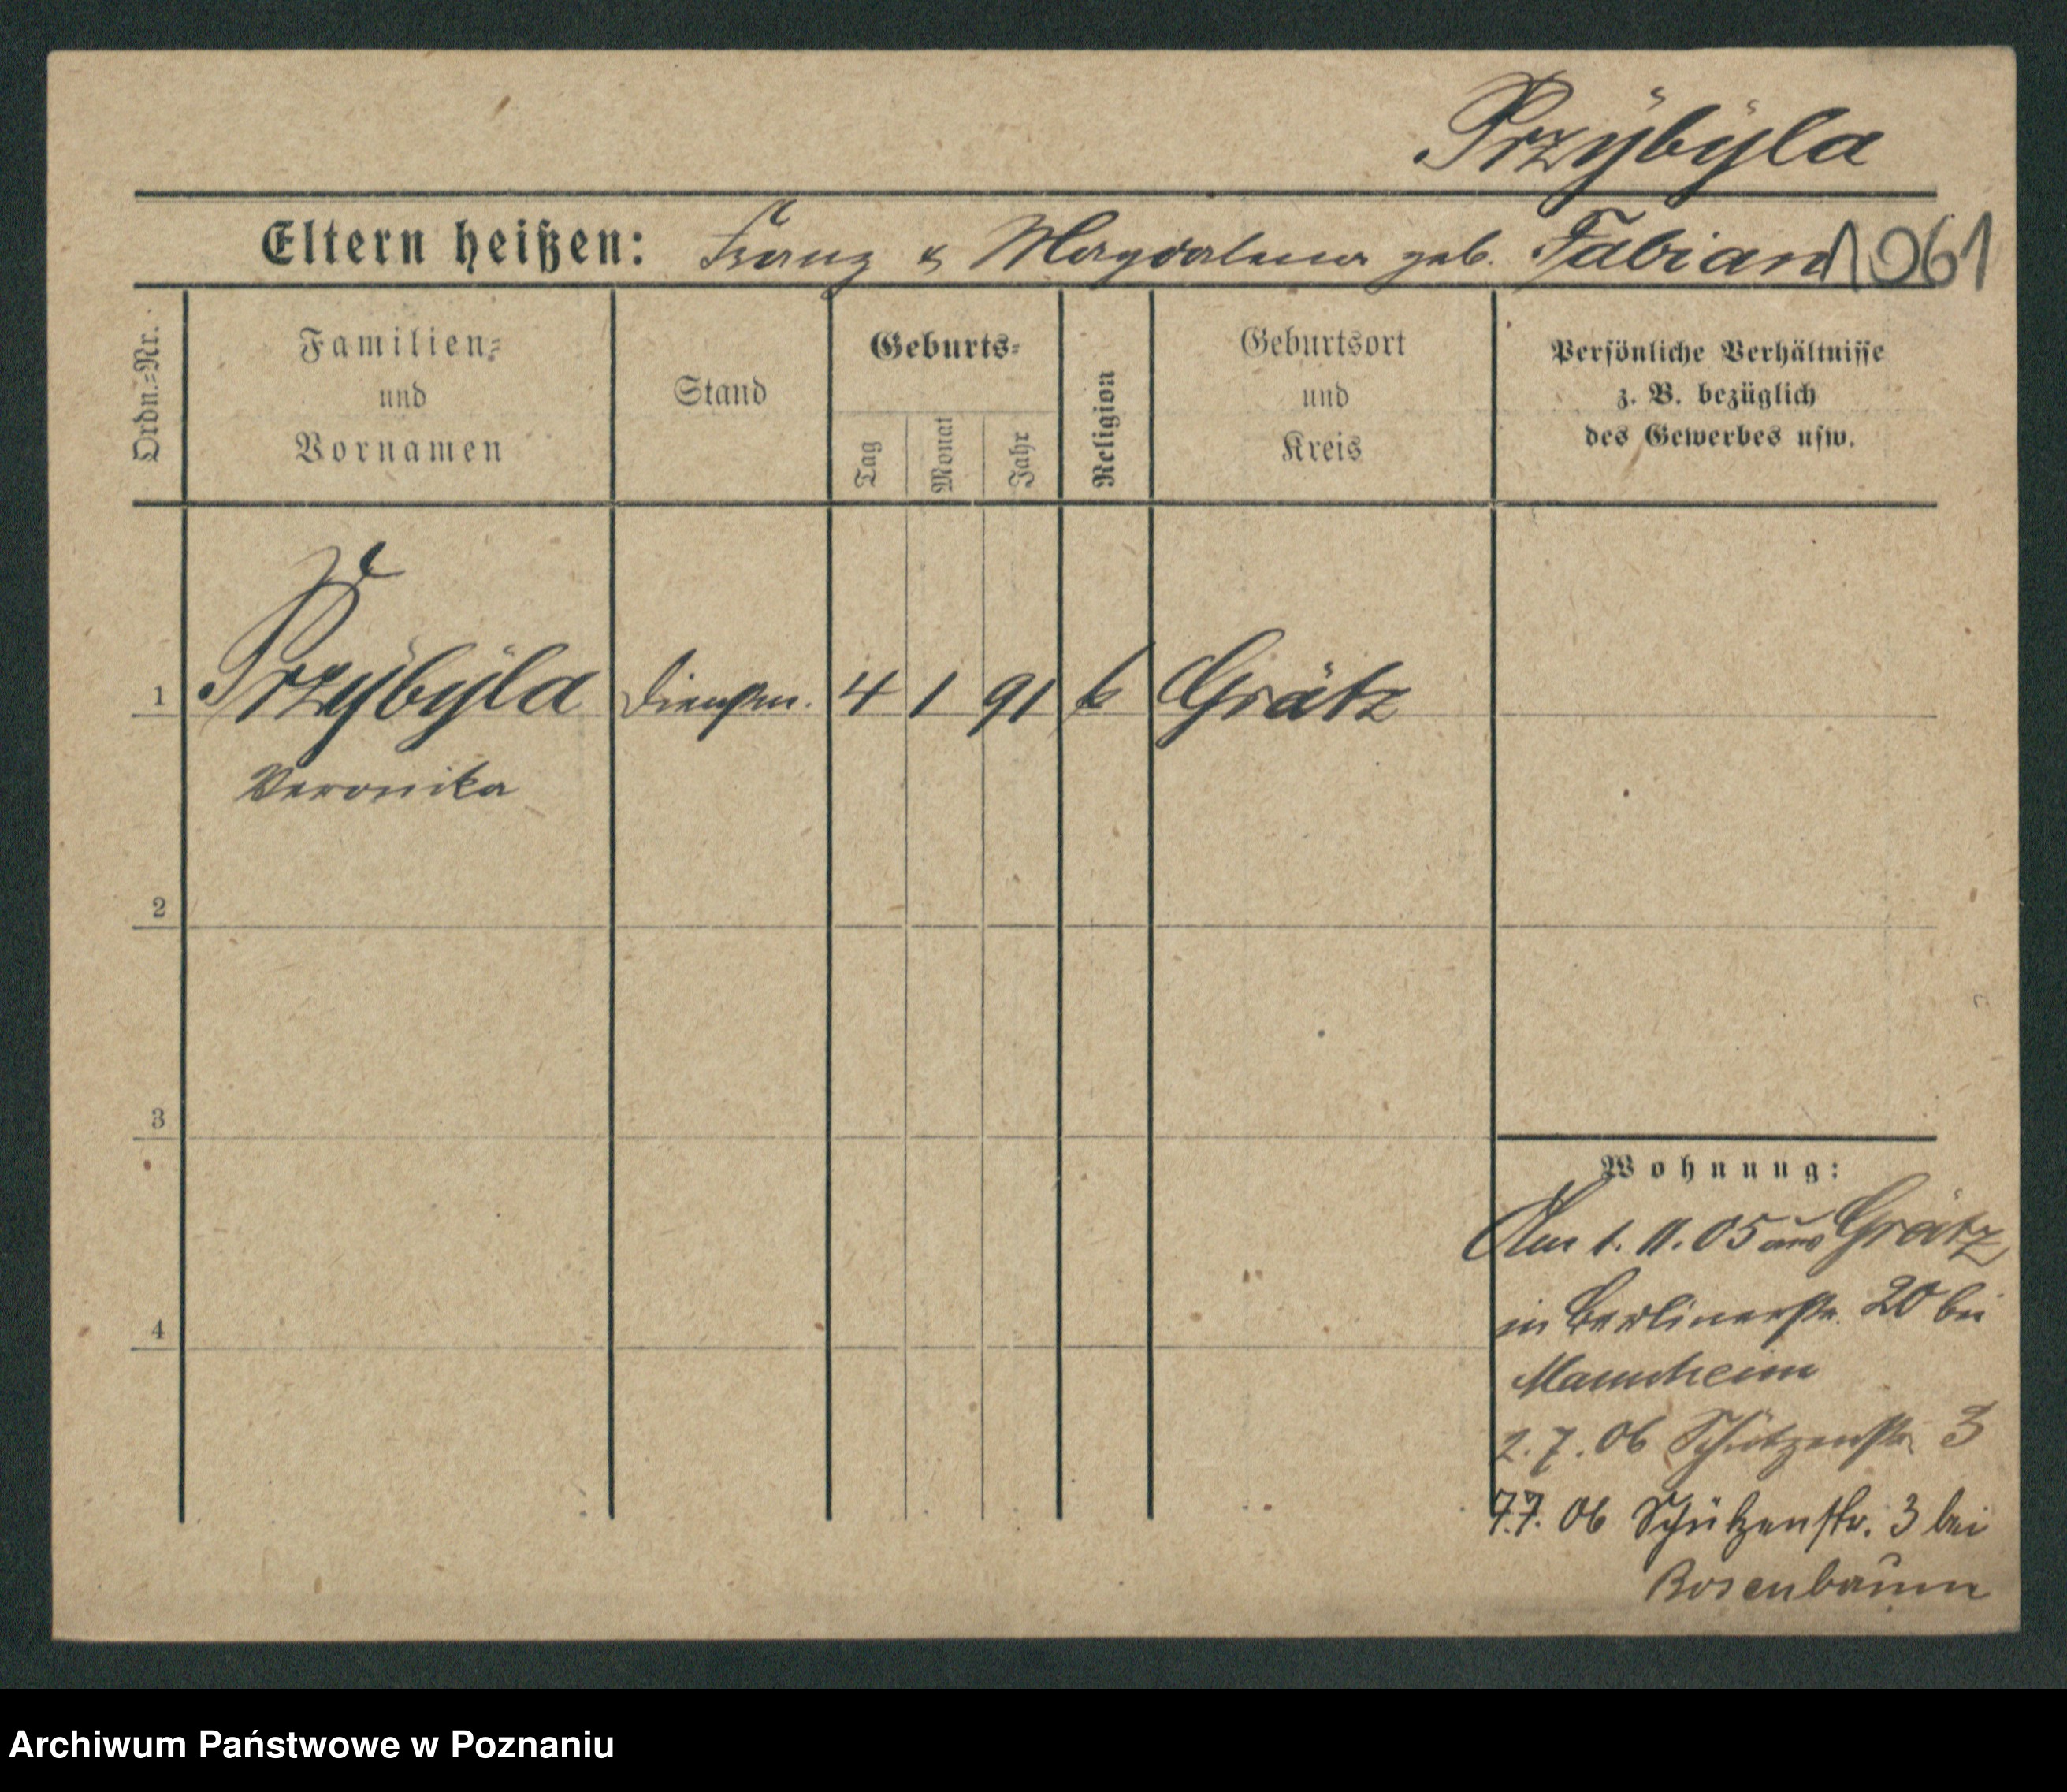 Przÿbÿla
Eltern heißen: Franz & Magdalena geb. Fabian
1061
Ordn.-Nr.
Familien-
und
Vornamen
Stand
Geburts-
Tag
Monat
Jahr
Religion
Geburtsort
und
Kreis
Persönliche Verhältnisse
z. B. bezüglich
des Gewerbes usw.
1 Przÿbÿla Dienstm. 4 1 91 k Grätz
Veronika
2
3
4
Wohnung:
Am 1. 11. 05 aus Grätz
in Berlinerstr. 20 bei
Mannheim
2. 7. 06 Schützenstr. 3
7.7. 06 Schützenstr. 3 bei
Rosenbaum
Archiwum Państwowe w Poznaniu